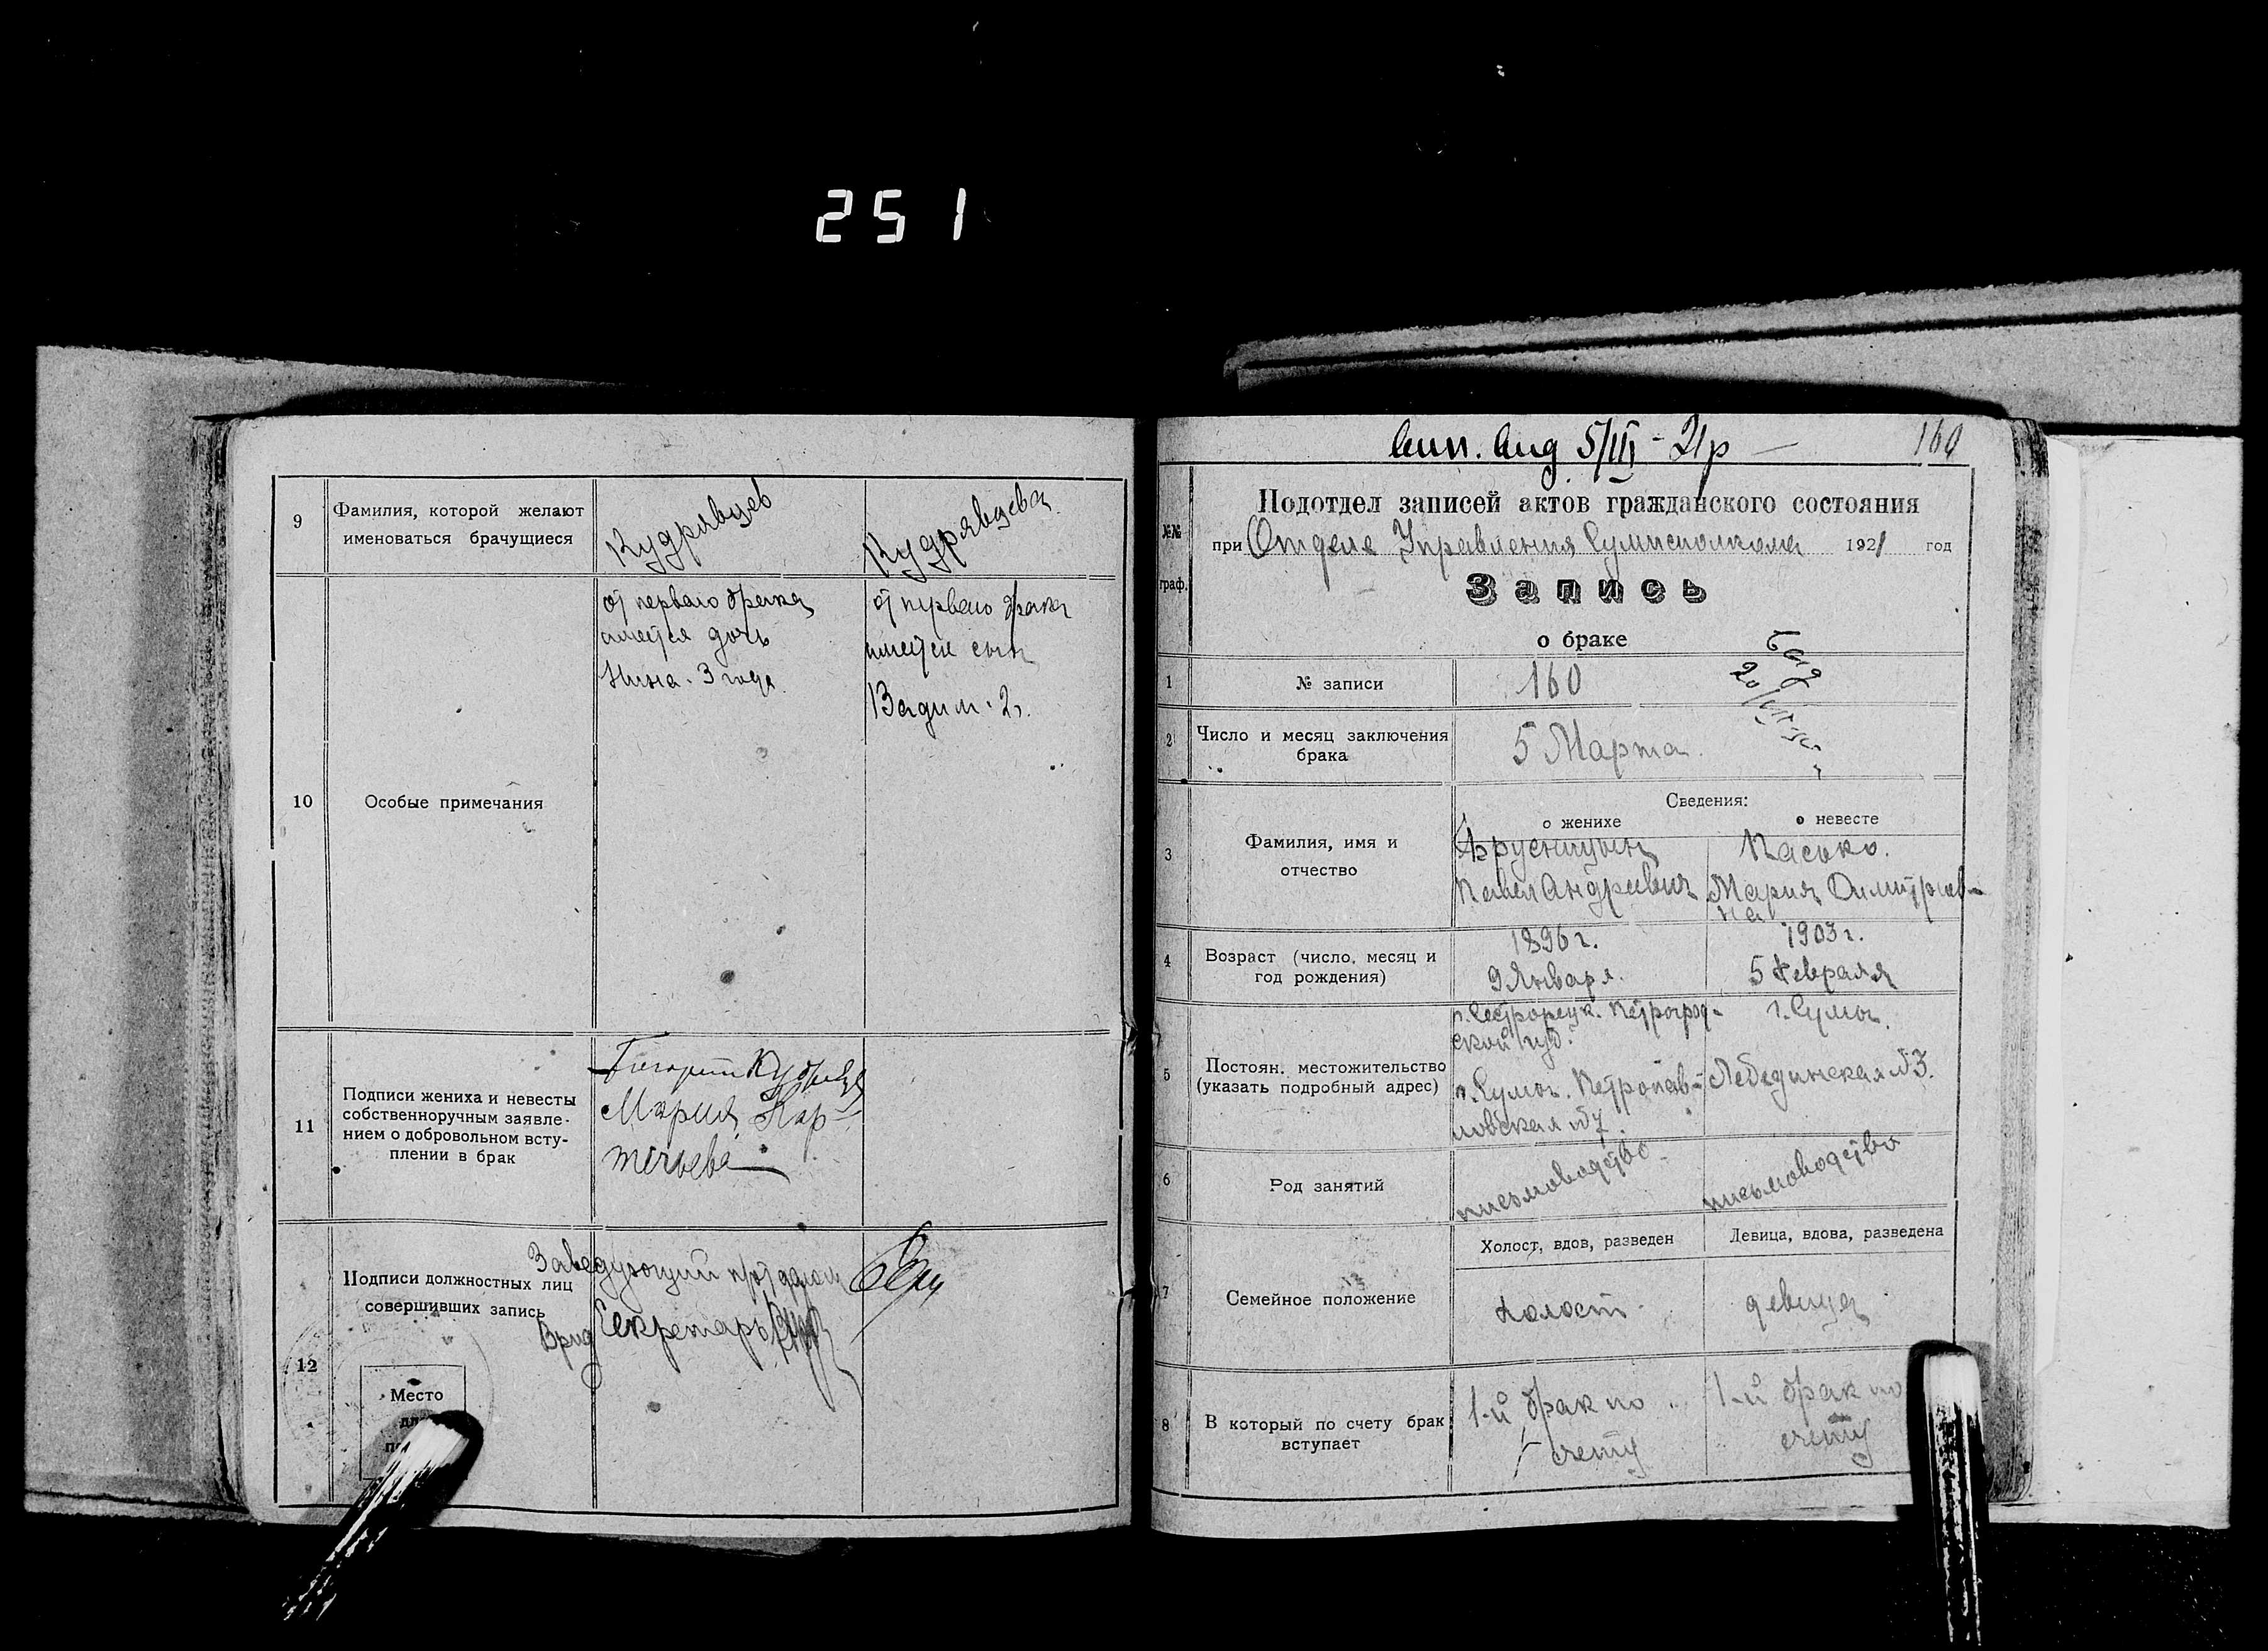 251
9
Фамилия, которой желают
именоваться брачущиеся
Кудрявцев
Кудрявцева
10
Особые примечания
от перваго брака
имеется дочь
Нина. 3 года.
от перваго брака
имеется сын
Вадим. 2 г.
11
Подписи жениха и невесты
собственноручным заявле-
нием о добровольном всту-
плении в брак
Кудрявцев
Мария
12
Подписи должностных лиц
совершивших запись
Заведующий
Врид Секретарь
Место
5/III - 21р
160
№№
граф.
Подотдел записей актов гражданского состояния
при Отделе Управления Сумисполкома 1921 год
Запись
о браке
1
№ записи
160
2
Число и месяц заключения
брака
5 Марта.
Сведения:
о женихе
о невесте
3
Фамилия, имя и
отчество
Брусницын
Павел Андреевич
Пасько.
Мария Димитриев-
на
4
Возраст (число, месяц и
год рождения)
1896 г.
9 Января.
1903 г.
5 Февраля
5
Постоян. местожительство
(указать подробный адрес)
г. Сестрорецк. Петроград-
ской губ.
г. Сумы. Петропав-
ловская №7.
г. Сумы.
Лебединская №3.
6
Род занятий
письмоводство
письмоводство
7
Семейное положение
Холост, вдов, разведен
Девица, вдова, разведена
холост.
девица
8
В который по счету брак
вступает
1-й брак по
счету
1-й брак по
счету